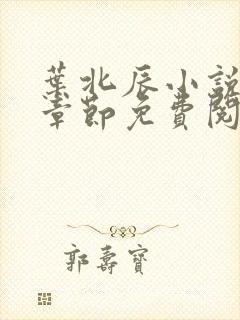 葉北辰小說
章節免費閱
郭壽寶